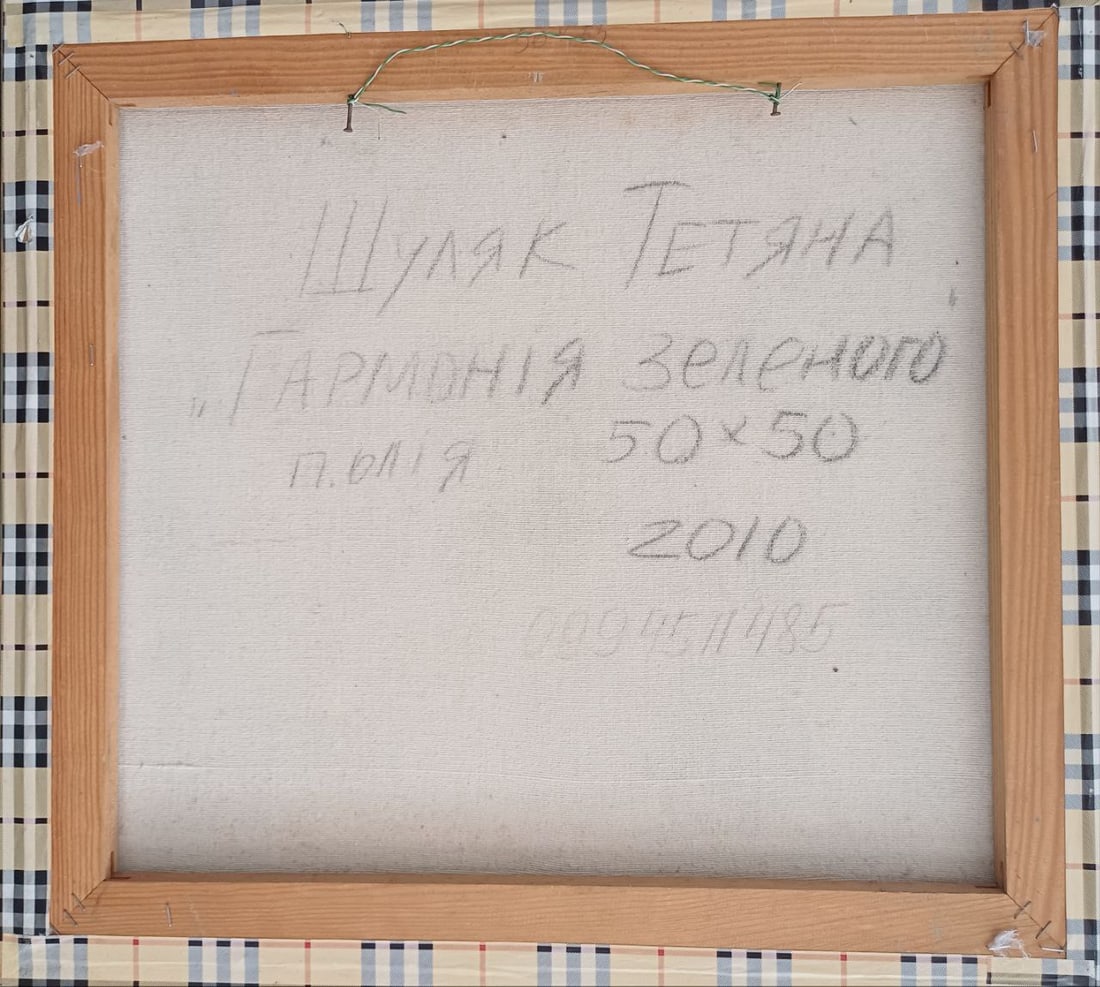 Шуляк Тетяна
„Гармонія зеленого"
п.олія 50×50
2010
0994511485